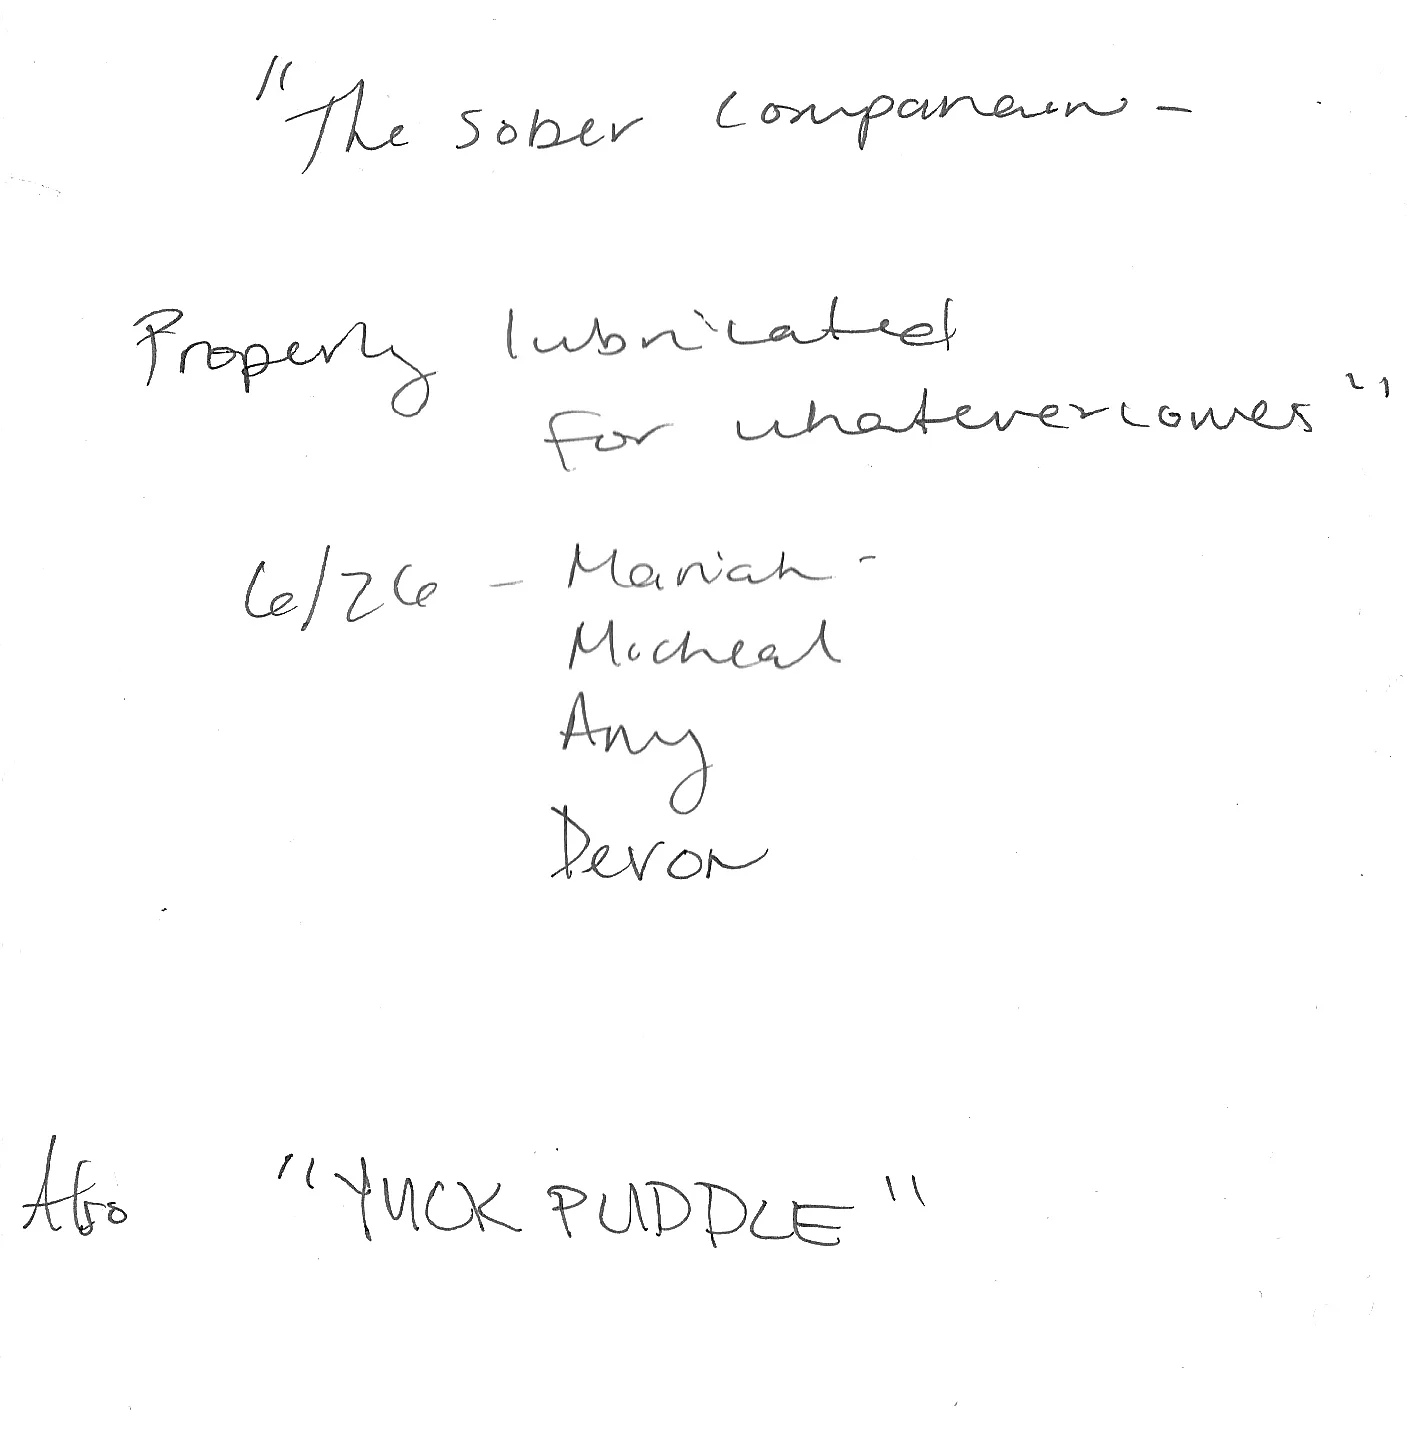 "The sober companein -
Properly lubricated
for whatever comes"
6/26 - Mariah -
Micheal
Amy
Devon
Also "YUCK PUDDLE"